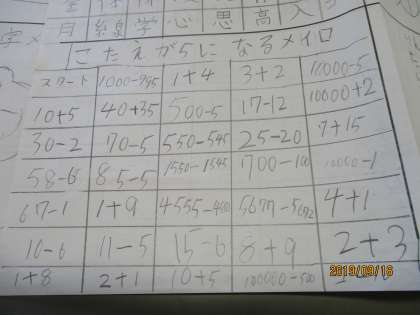 字
月 線 学 心 思 高 入
こたえが5になるメイロ
スタート 1000-995 1+4 3+2 10000-5
10+5 40+35 500-5 17-12 10000+2
30-2 70-5 550-545 25-20 7+15
58-6 85-5 1550-1545 700-100 10000-1
67-1 1+9 4555-400 5677-5672 4+1
10-6 11-5 15-6 8+9 2+3
1+8 2+1 10+5 100000-500
2019/09/16